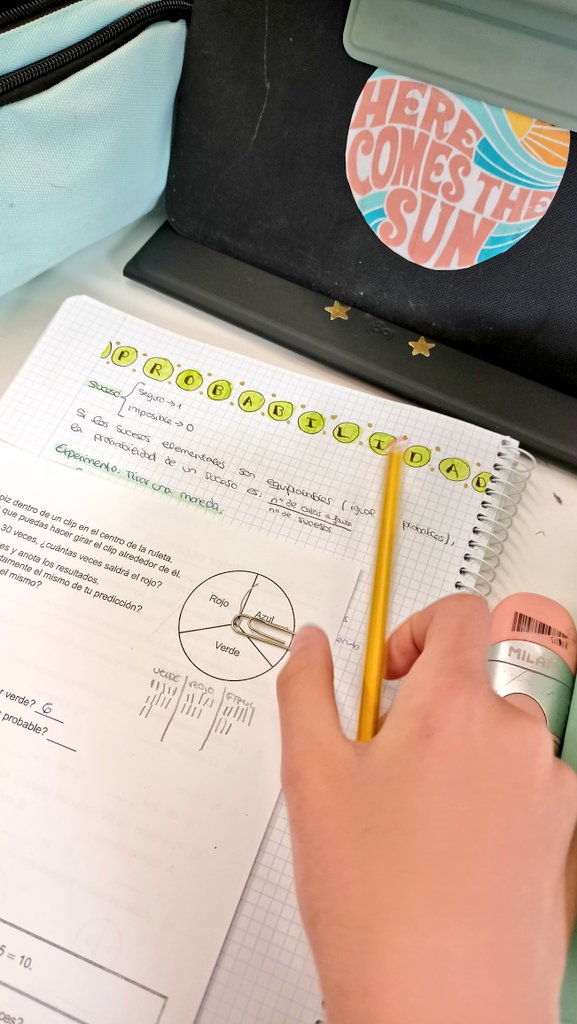 HERE
COMES THE
SUN
PROBABILIDAD
suceso
seguro → 1
imposible → 0
Si los sucesos elementales son equiprobables (igual probables),
la probabilidad de un suceso es: nº de casos a favor
nº de sucesos
Experimento: Tirar una moneda.
piz dentro de un clip en el centro de la ruleta.
que puedas hacer girar el clip alrededor de él.
30 veces, ¿cuántas veces saldrá el rojo?
es y anota los resultados.
tamente el mismo de tu predicción?
el mismo?
Rojo
Azul
Verde
VERDE ROJO AZUL
r verde? 6
probable?
MILAN
5 = 10.
ces?